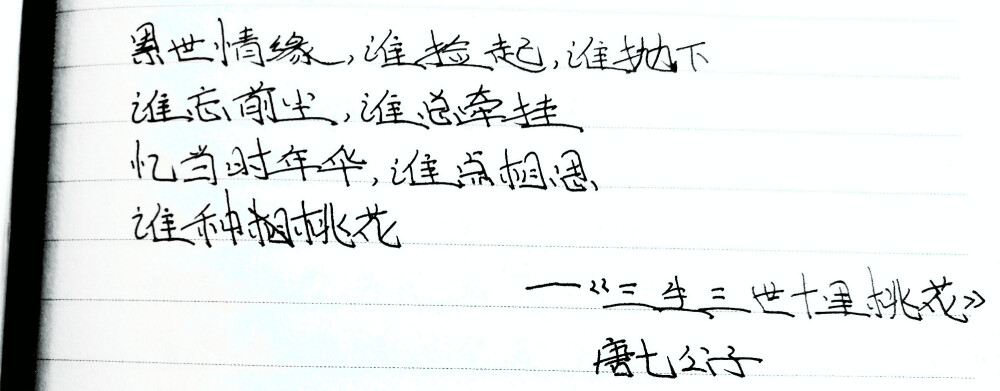 累世情缘,谁捡起,谁抛下
谁忘前尘,谁总牵挂
忆当时年华,谁点相思
谁种桃花
——《三生三世十里桃花》
唐七公子